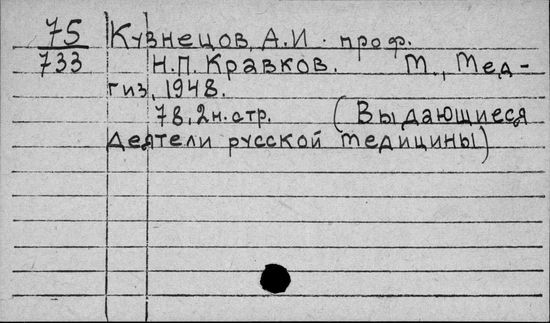 75 Кузнецов, А.И. проф.
733 Н.П. Кравков. М., Мед-
гиз, 1948.
78, 2 н. стр. (Выдающиеся
деятели русской медицины)